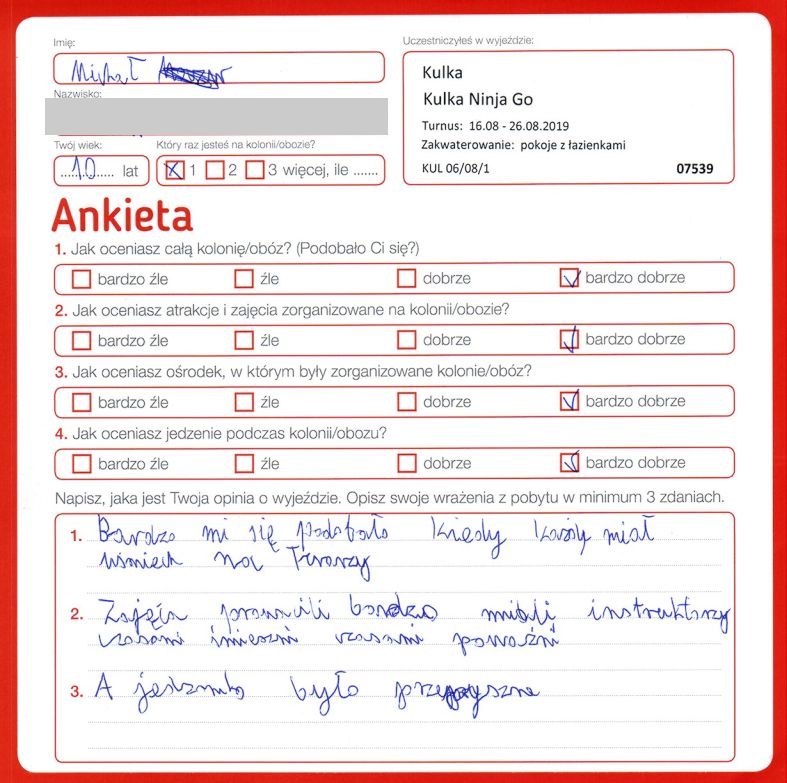 Imię:
Michał
Nazwisko:
Twój wiek:
10 lat
Który raz jesteś na kolonii/obozie?
1 2 3 więcej, ile .......
Uczestniczyłeś w wyjeździe:
Kulka
Kulka Ninja Go
Turnus: 16.08 - 26.08.2019
Zakwaterowanie: pokoje z łazienkami
KUL 06/08/1 07539
Ankieta
1. Jak oceniasz całą kolonię/obóz? (Podobało Ci się?)
bardzo źle źle dobrze bardzo dobrze
2. Jak oceniasz atrakcje i zajęcia zorganizowane na kolonii/obozie?
bardzo źle źle dobrze bardzo dobrze
3. Jak oceniasz ośrodek, w którym były zorganizowane kolonie/obóz?
bardzo źle źle dobrze bardzo dobrze
4. Jak oceniasz jedzenie podczas kolonii/obozu?
bardzo źle źle dobrze bardzo dobrze
Napisz, jaka jest Twoja opinia o wyjeździe. Opisz swoje wrażenia z pobytu w minimum 3 zdaniach.
1. Bardzo mi się podobało kiedy każdy miał
uśmiech na twarzy
2. Zajęcia prowadzili bardzo mili instruktorzy
czasami śmieszni czasami poważni
3. A jedzenie było przepyszne